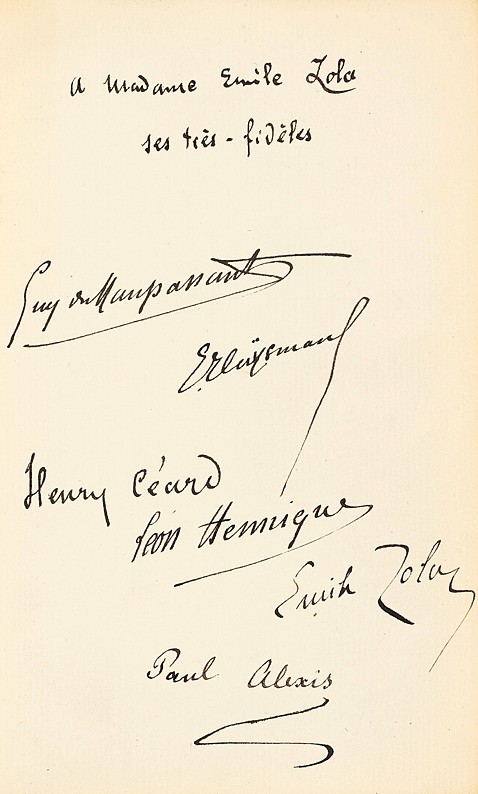 A Madame Emile Zola
ses très-fidèles
Guy de Maupassant
Huÿsmans
Henry Céard
Léon Hennique
Emile Zola
Paul Alexis